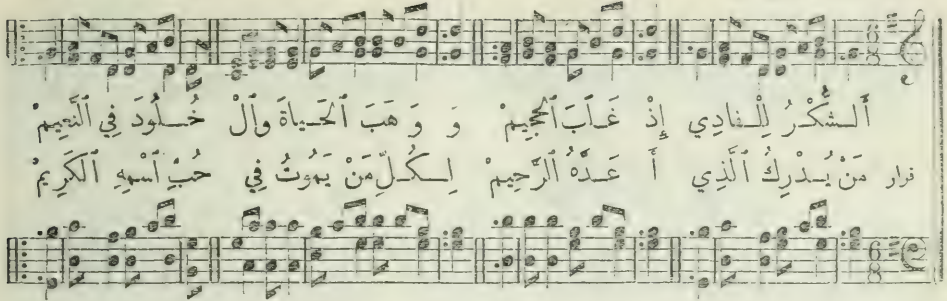 أَلشُّكْرُ لِلْفَادِي إِذْ غَلَبَ ٱلْجَحِيمْ وَ وَهَبَ ٱلْحَيَاةَ وَٱلْ خُلُودَ فِي ٱلنَّعِيمْ
قرار مَنْ يُدْرِكُ ٱلَّذِي أَ عَدَّهُ ٱلرَّحِيمْ لِكُلِّ مَنْ يَمُوتُ فِي حُبِّ ٱسْمِهِ ٱلْكَرِيمْ